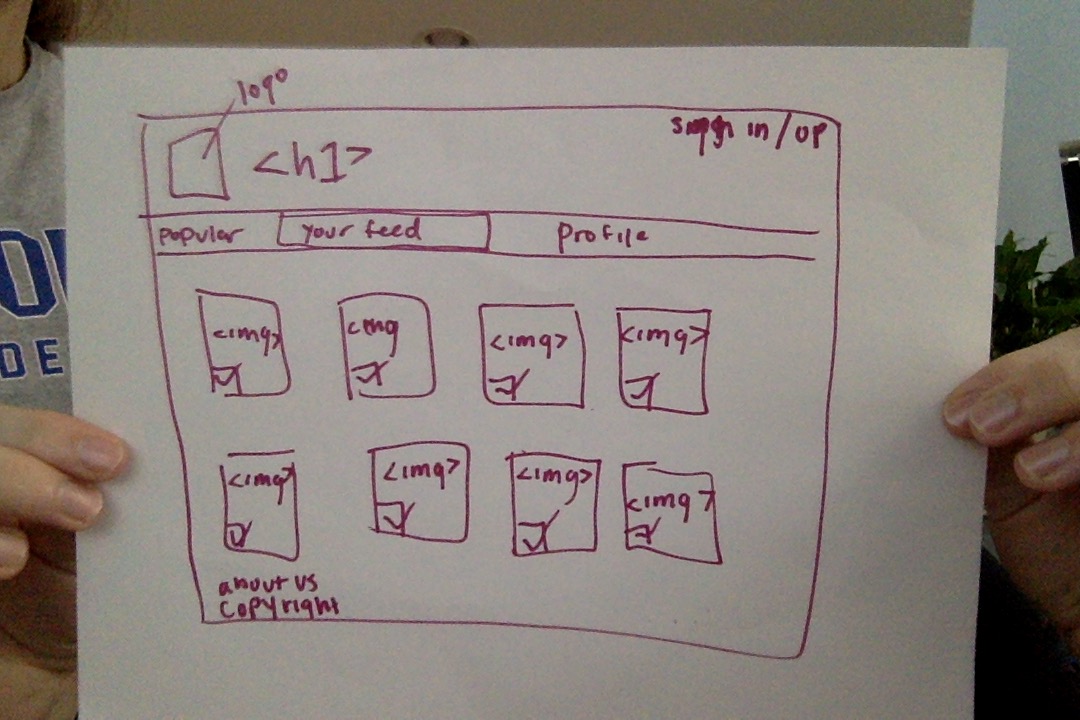 logo
<h1>
in / up
popular
your feed
Profile
<img>
<img
<img>
<img>
<img>
<img>
<img>
<img>
about us
copyright